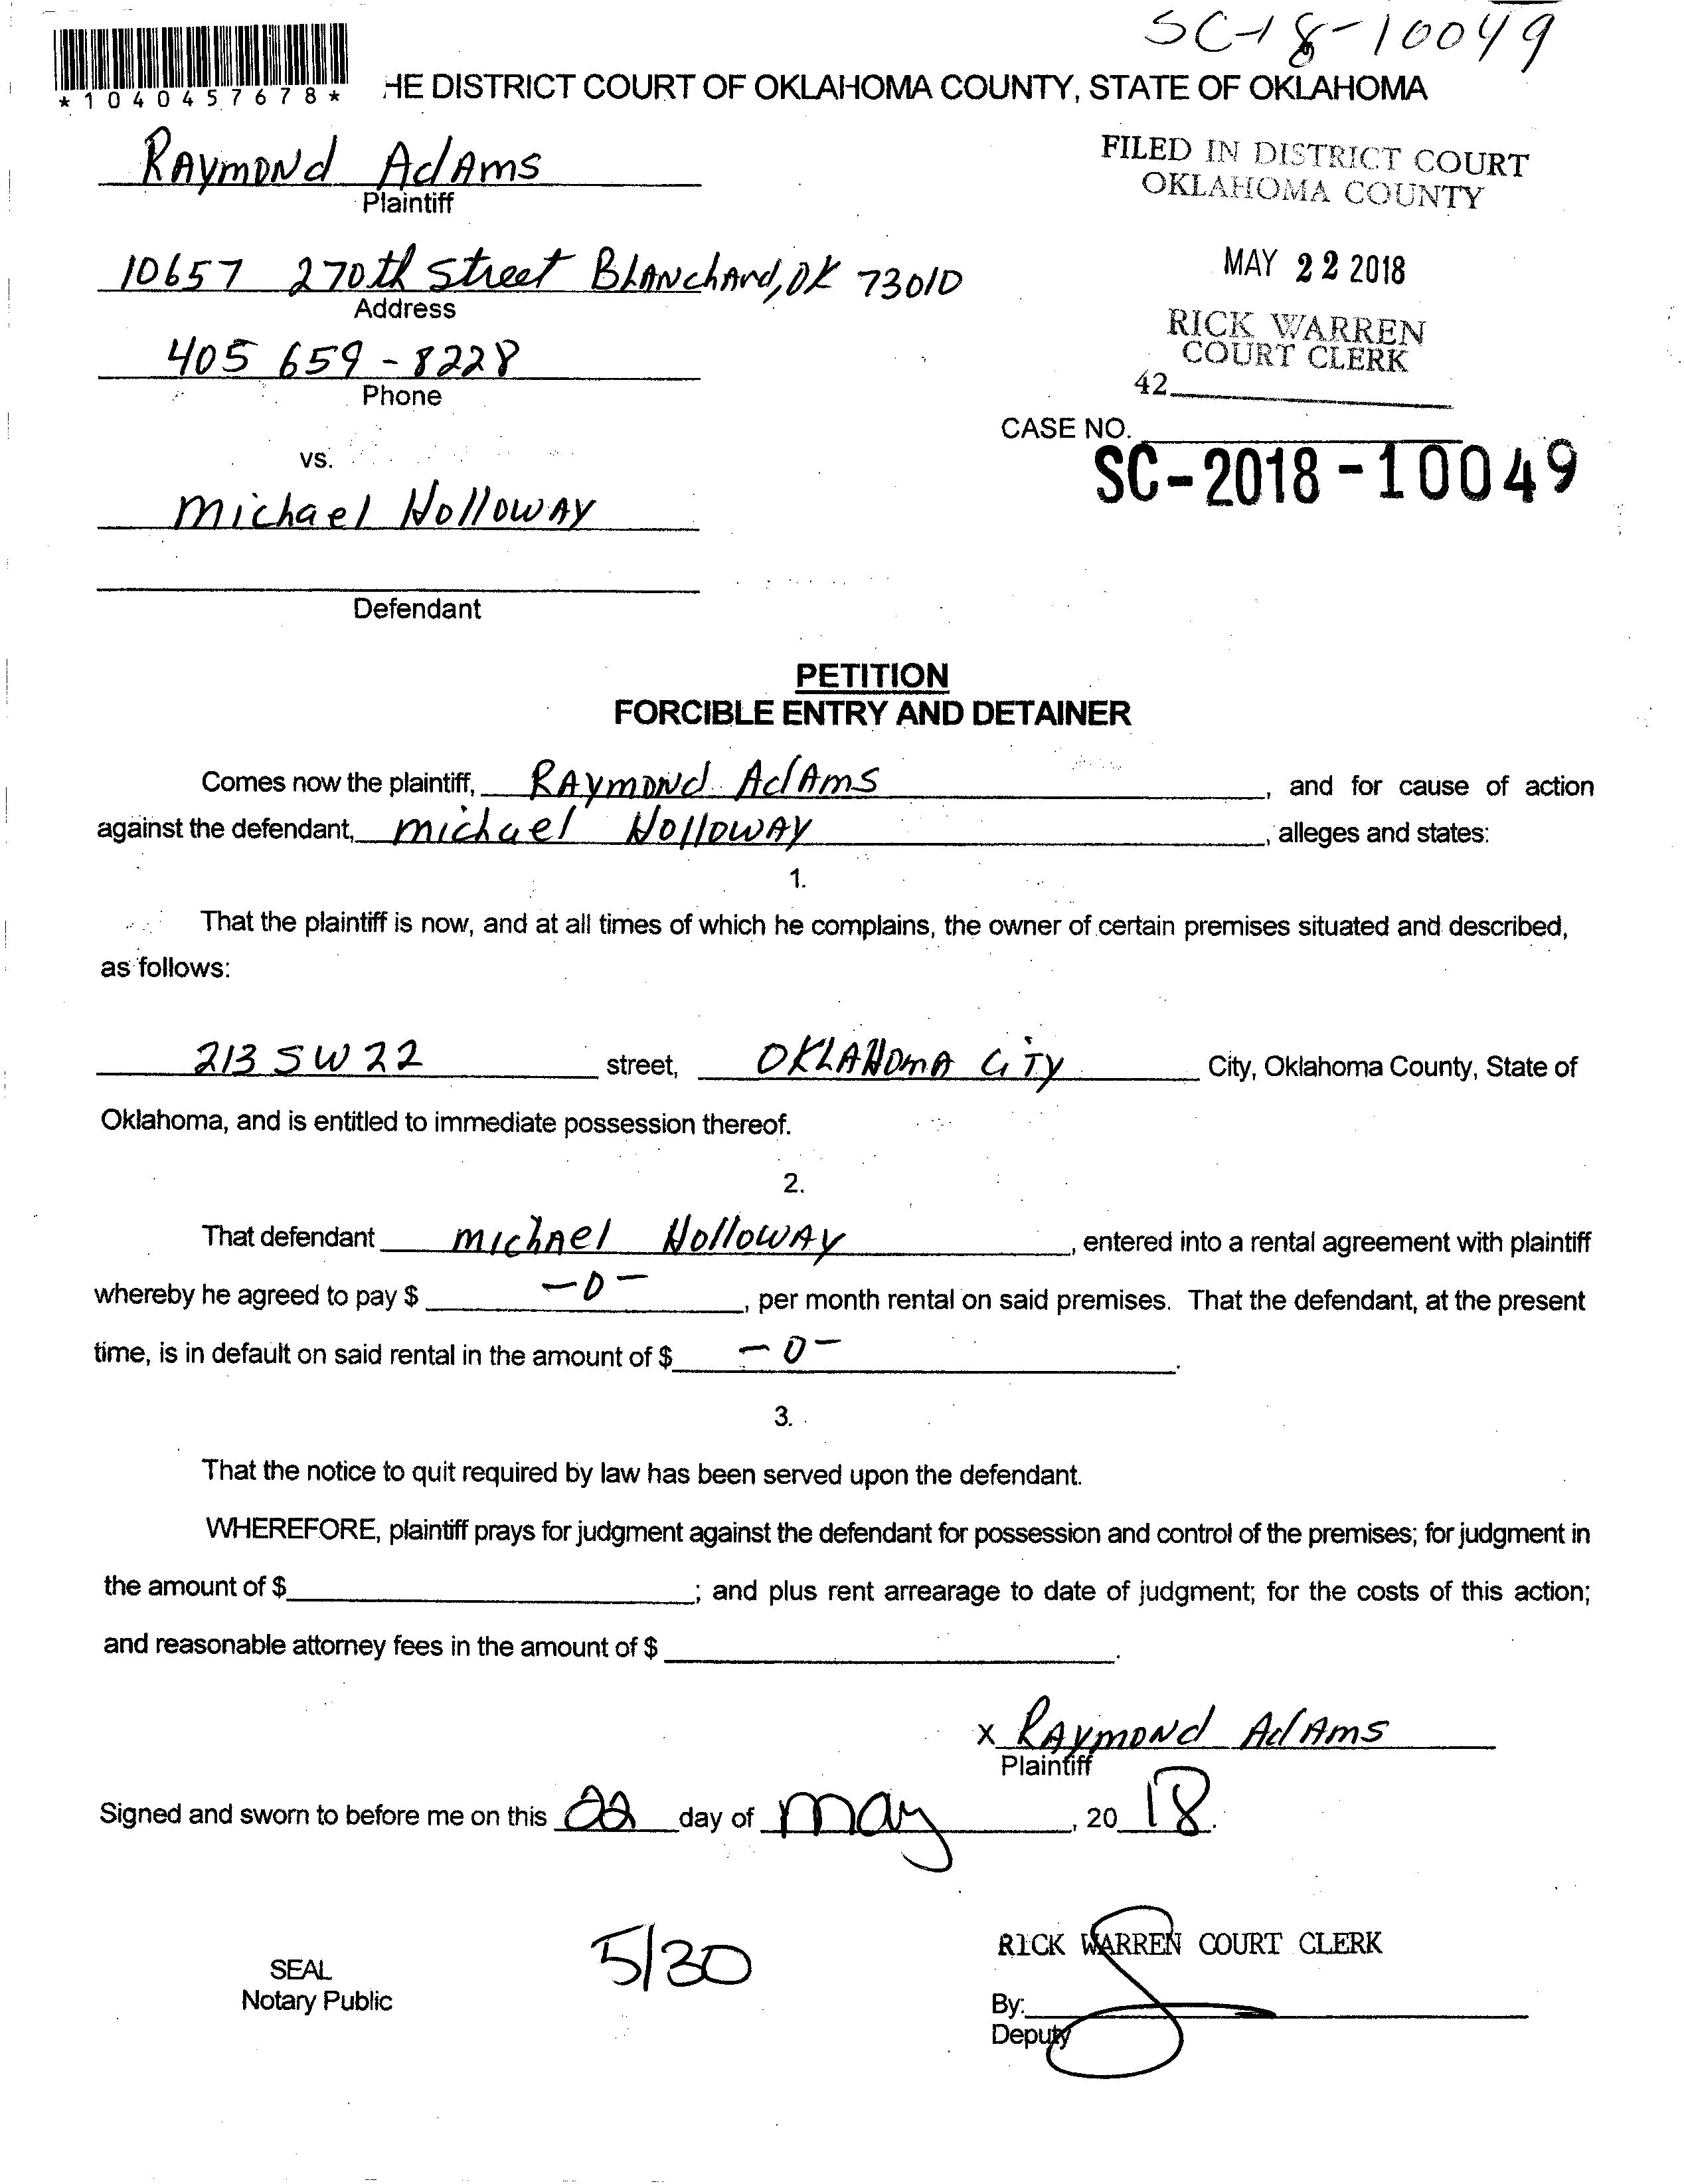 SC-18-10049
*1040457678*
HE DISTRICT COURT OF OKLAHOMA COUNTY, STATE OF OKLAHOMA
RAymoNd AdAms
Plaintiff
FILED IN DISTRICT COURT
OKLAHOMA COUNTY
10657 270th Street BLANchArd, OK 73010
Address
MAY 22 2018
405 659-8228
Phone
RICK WARREN
COURT CLERK
42
CASE NO.
SC-2018-10049
vs.
michael HollowAy
Defendant
PETITION
FORCIBLE ENTRY AND DETAINER
Comes now the plaintiff, RAymoNd AdAms, and for cause of action
against the defendant, michael HollowAy, alleges and states:
1.
That the plaintiff is now, and at all times of which he complains, the owner of certain premises situated and described,
as follows:
213 SW 22 street, OKLAHOmA CiTy City, Oklahoma County, State of
Oklahoma, and is entitled to immediate possession thereof.
2.
That defendant michAel HollowAy, entered into a rental agreement with plaintiff
whereby he agreed to pay $ -0-, per month rental on said premises. That the defendant, at the present
time, is in default on said rental in the amount of $ -0-.
3.
That the notice to quit required by law has been served upon the defendant.
WHEREFORE, plaintiff prays for judgment against the defendant for possession and control of the premises; for judgment in
the amount of $; and plus rent arrearage to date of judgment; for the costs of this action;
and reasonable attorney fees in the amount of $.
X RAymoNd AdAms
Plaintiff
Signed and sworn to before me on this 22 day of may, 20 18.
5/30
SEAL
Notary Public
RICK WARREN COURT CLERK
By:
Deputy